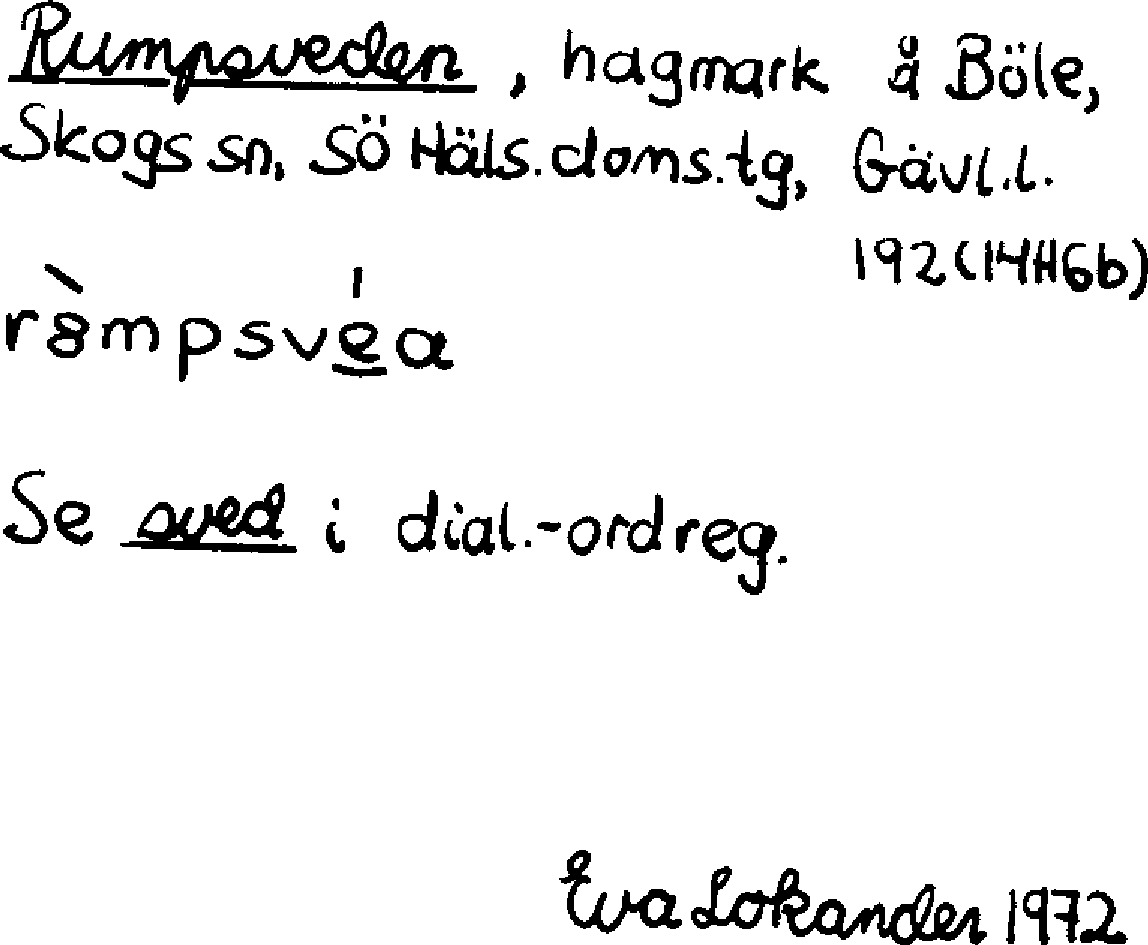 Rumpsveden, hagmark å Böle,
Skogs sn, SÖ Häls.doms.tg, Gävl.l.
192(14H6b)
Se sved i dial.-ordreg.
Eva Lokander 1972